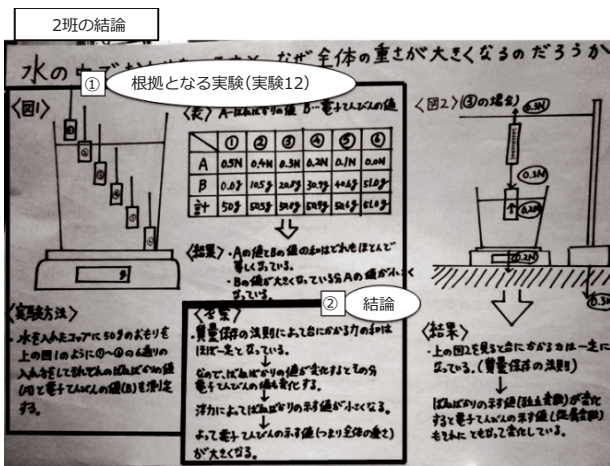 2班の結論
水の中で なぜ全体の重さが大きくなるのだろうか
① 根拠となる実験(実験12)
〈図1〉
① ② ③ ④ ⑤ ⑥
g
〈表〉 A…ばねばかりの値 B…電子てんびんの値
① ② ③ ④ ⑤ ⑥
A 0.5N 0.4N 0.3N 0.2N 0.1N 0.0N
B 0.0g 10.5g 20.8g 30.9g 40.6g 51.0g
計 50g 50.5g 50.8g 50.9g 50.6g 51.0g
〈結果〉・Aの値とBの値の和はどれもほとんど
等しくなっている。
・Bの値が大きくなっている分Aの値が小さく
なっている。
〈実験方法〉
・水を入れたコップに50gのおもりを
上の図1のように①〜⑥の6通りの
入れ方をしてそれぞれのばねばかりの値
(A)と電子てんびんの値(B)を測定
する。
② 結論
〈考察〉
・質量保存の法則によって台にかかる力の和は
ほぼ一定となっている。
なので、ばねばかりの値が変化するとその分
電子てんびんの値も変化する。
浮力によってばねばかりの示す値が小さくなる。
よって電子てんびんの示す値(つまり全体の重さ)
が大きくなる。
〈図2〉(③の場合)
0.3N
0.3N
0.2N
0.2N
0.3N
〈結果〉
・上の図2を見ると台にかかる力は一定に
なっている。(質量保存の法則)
ばねばかりの示す値(独立変数)が変化
すると電子てんびんの示す値(従属変数)
もそれにともなって変化している。